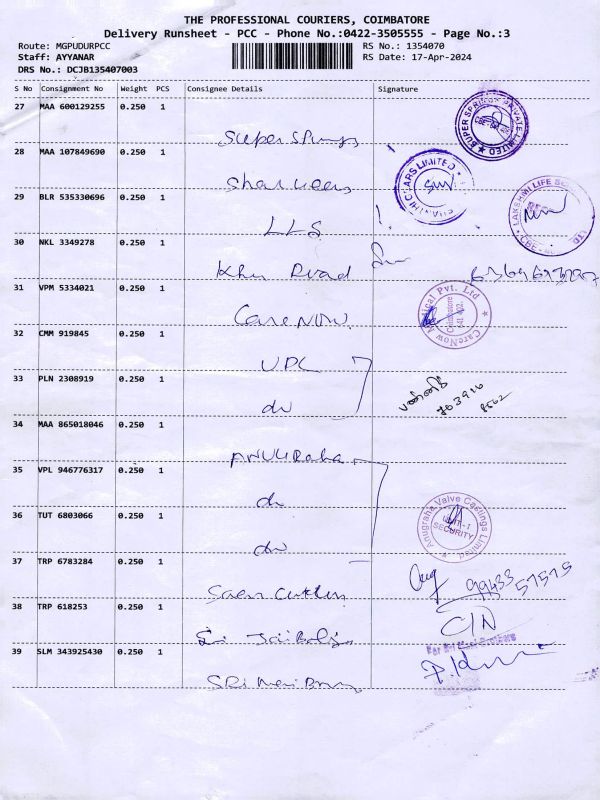 THE PROFESSIONAL COURIERS, COIMBATORE
Delivery Runsheet - PCC - Phone No.:0422-3505555 - Page No.:3
Route: MGPUDURPCC RS No.: 1354070
Staff: AYYANAR RS Date: 17-Apr-2024
DRS No.: DCJB135407003
S No Consignment No Weight PCS Consignee Details Signature
27 MAA 600129255 0.250 1
Super Springs
SUPER SPRINGS PRIVATE LIMITED
28 MAA 107849690 0.250 1
CARS LIMITED
29 BLR 535330696 0.250 1
LLS
LAKSHMI LIFE
30 NKL 3349278 0.250 1
Road
31 VPM 5334021 0.250 1
CareNOW
CareNow Medical Pvt. Ltd
Coimbatore
32 CMM 919845 0.250 1
UPL
33 PLN 2308919 0.250 1
do
34 MAA 865018046 0.250 1
ANUGRaha
35 VPL 946776317 0.250 1
do
36 TUT 6803066 0.250 1
do
Anugraha Valve Castings Limited
UNIT-I
SECURITY
37 TRP 6783284 0.250 1
99433 57575
38 TRP 618253 0.250 1
C/N
Sri
39 SLM 343925430 0.250 1
SRi